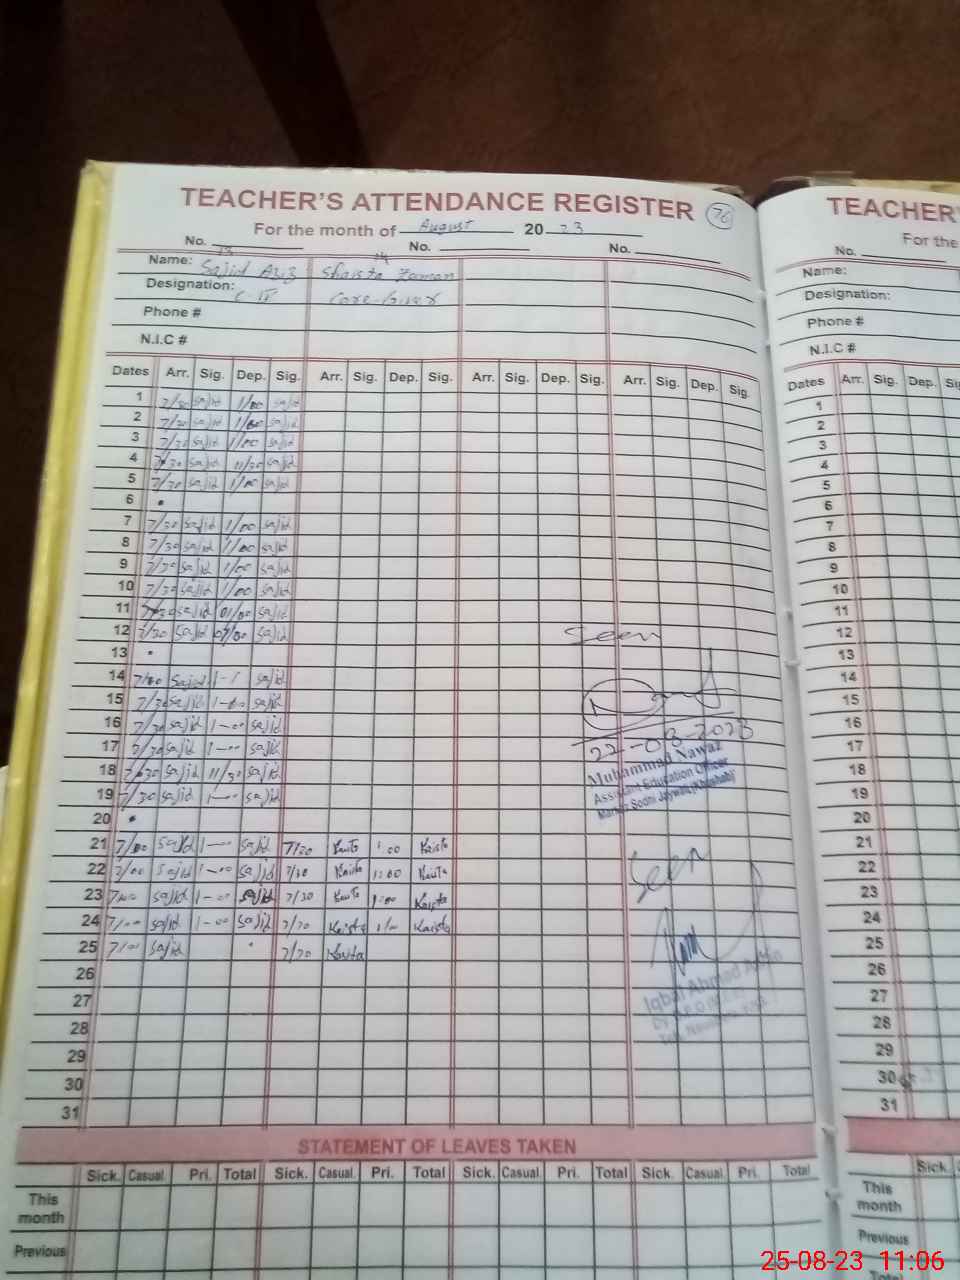 TEACHER'S ATTENDANCE REGISTER 76
For the month of August 2023
No. 13 No. 14 No.
Name: Sajid Aziz Shaista Zaman
Designation: C-IV Care-Giver
Phone #
N.I.C #
Dates Arr. Sig. Dep. Sig. Arr. Sig. Dep. Sig. Arr. Sig. Dep. Sig. Arr. Sig. Dep. Sig.
1 7/30 Sajid 1/00 Sajid
2 7/30 Sajid 1/00 Sajid
3 7/30 Sajid 1/00 Sajid
4 7/30 Sajid 11/30 Sajid
5 7/30 Sajid 1/00 Sajid
6
7 7/30 Sajid 1/00 Sajid
8 7/30 Sajid 1/00 Sajid
9 7/30 Sajid 1/00 Sajid
10 7/30 Sajid 1/00 Sajid
11 7/30 Sajid 01/00 Sajid
12 7/30 Sajid 01/00 Sajid
Seen
13
14 7/00 Sajid Sajid
15 7/30 Sajid 1-00 Sajid
16 7/30 Sajid 1-00 Sajid
22-08-2023
17 7/30 Sajid 1-00 Sajid
Muhammad Nawaz
Assistant Education Officer
Markaz Sodhi Jaywali (Khushab)
18 7/30 Sajid 11/30 Sajid
19 7/30 Sajid 1-00 Sajid
20
21 7/00 Sajid 1-00 Sajid 7/30 1:00
22 7/00 Sajid 1-00 Sajid 7/30 1:00
Seen
23 7/00 Sajid 1-00 Sajid 7/30 1:00
24 7/00 Sajid 1-00 Sajid 7/30 1/00
25 7/00 Sajid 7/30
26
Iqbal Ahmad
27
28
29
30
31
STATEMENT OF LEAVES TAKEN
Sick. Casual. Pri. Total Sick. Casual. Pri. Total Sick. Casual. Pri. Total Sick. Casual. Pri. Total
This month
Previous
TEACHER'
For the
No.
Name:
Designation:
Phone #
N.I.C #
Dates Arr. Sig. Dep.
1
2
3
4
5
6
7
8
9
10
11
12
13
14
15
16
17
18
19
20
21
22
23
24
25
26
27
28
29
30
31
Sick.
This month
Previous
25-08-23 11:06